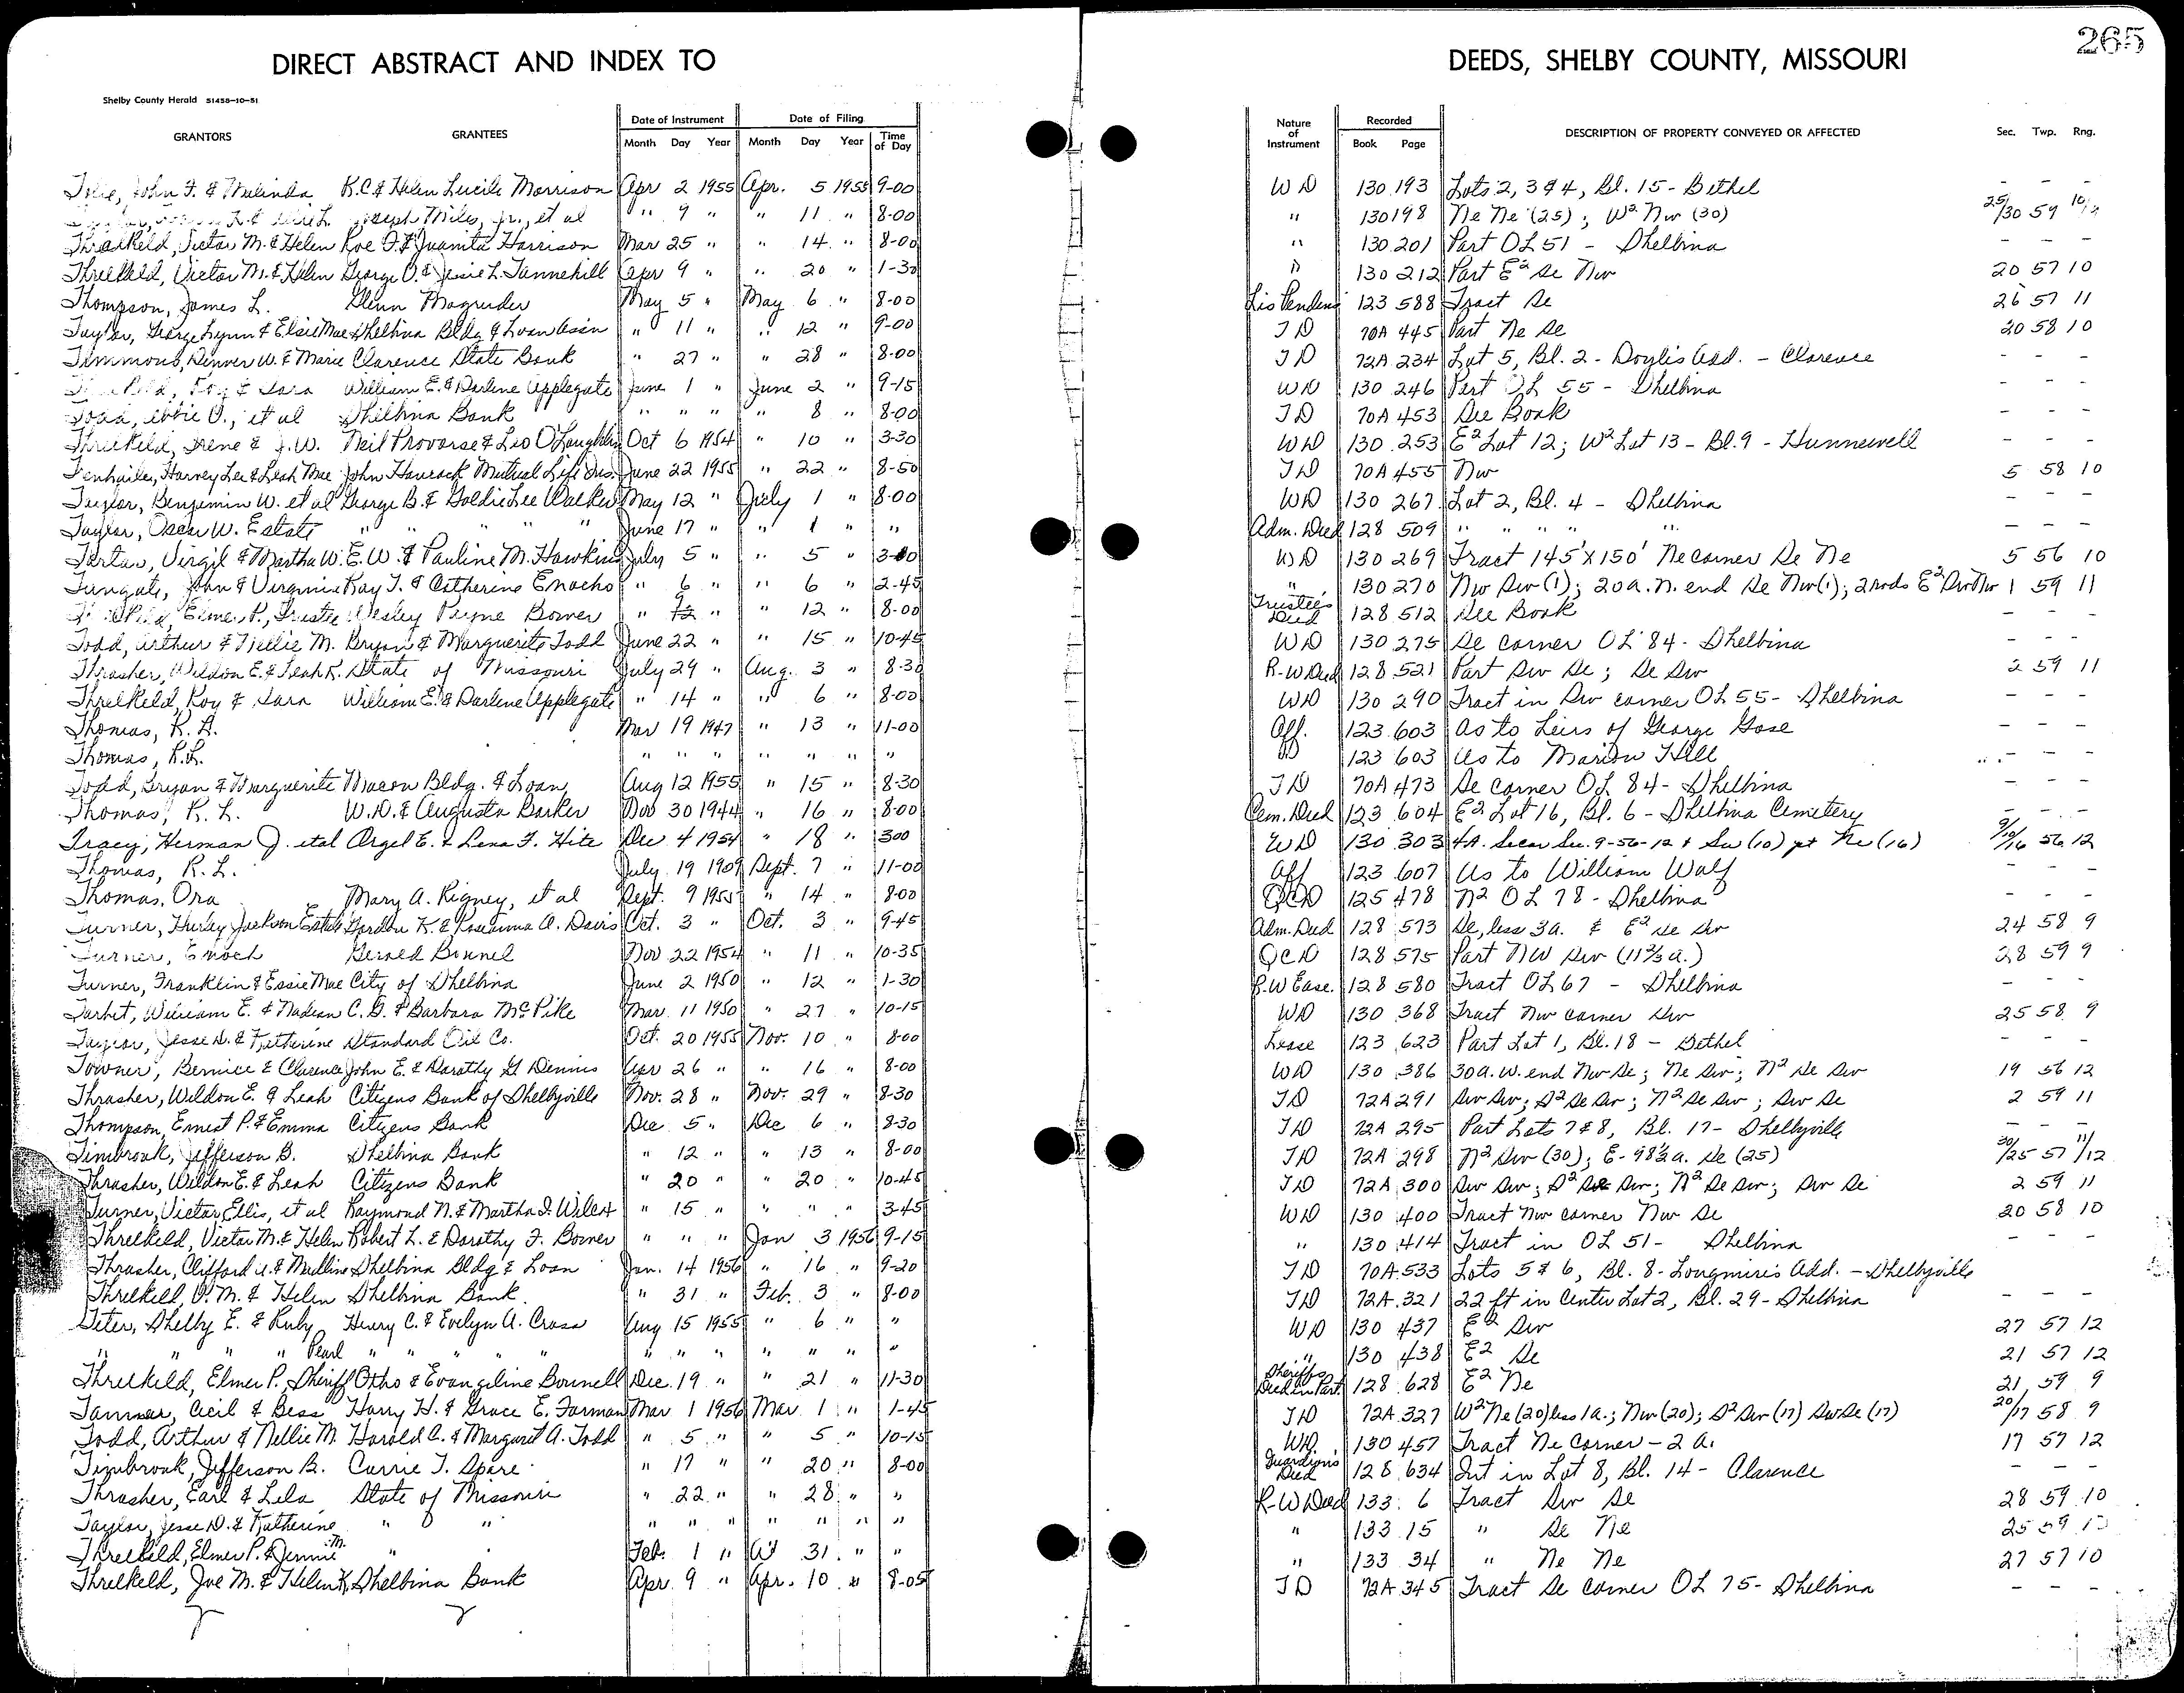 265
DIRECT ABSTRACT AND INDEX TO DEEDS, SHELBY COUNTY, MISSOURI
Shelby County Herald 51458-10-51
GRANTORS GRANTEES Date of Instrument Month Day Year Date of Filing Month Day Year Time of Day Nature of Instrument Recorded Book Page DESCRIPTION OF PROPERTY CONVEYED OR AFFECTED Sec. Twp. Rng.
John F. & Melinda R.C. & Helen Lucile Morrison Apr 2 1955 Apr. 5 1955 9-00 W D 130 193 Lots 2, 3 & 4, Bl. 15 - Bethel - - -
Joseph Miles, Jr., et al " 9 " " 11 " 8-00 " 130 198 Ne Ne (25); W² Nw (30) 25/30 59
Threlkeld, Victor M. & Helen Roe F. & Juanita Harrison Mar 25 " " 14 " 8-00 " 130 201 Part OL 51 - Shelbina - - -
Threlkeld, Victor M. & Helen George O. & Jessie L. Tannehill Apr 9 " " 20 " 1-30 " 130 212 Part E² Se Nw 20 57 10
Thompson, James L. Glenn Magruder May 5 " May 6 " 8-00 Lis Pendens 123 588 Tract Se 26 57 11
Taylor, George Lynn & Elsie Mae Shelbina Bldg & Loan Assn " 11 " " 12 " 9-00 T D 70A 445 Part Ne Se 20 58 10
Timmons, Denver W. & Marie Clarence State Bank " 27 " " 28 " 8-00 T D 72A 234 Lot 5, Bl. 2 - Doyles Add. - Clarence - - -
Roy & Sara William E. & Darlene Applegate June 1 " June 2 " 9-15 WD 130 246 Part OL 55 - Shelbina - - -
Todd, O., et al Shelbina Bank " " " " 8 " 8-00 T D 70A 453 See Book - - -
Threlkeld, Irene & J.W. Neil Provorse & Leo O'Laughlin Oct 6 1954 " 10 " 3-30 WD 130 253 E² Lot 12; W² Lot 13 - Bl. 9 - Hunnewell - - -
Harvey Lee & Leah Mae John Hancock Mutual Life Ins. June 22 1955 " 22 " 8-50 T D 70A 455 Nw 5 58 10
Taylor, Benjamin W. et al George B. & Goldie Lee Walker May 12 " July 1 " 8-00 WD 130 267 Lot 2, Bl. 4 - Shelbina - - -
Taylor, Oscar W. Estate " " " " June 17 " " 1 " " Adm. Deed 128 509 " " " " " - - -
Virgil & Martha W. E. W. & Pauline M. Hawkins July 5 " " 5 " 3-00 WD 130 269 Tract 145' X 150' Ne corner Se Ne 5 56 10
Tungate, John & Virginia Ray T. & Catherine Enochs " 6 " " 6 " 2-45 " 130 270 Nw Sw (1); 20 a. N. end Se Nw (1); 2 rods E² Sw Nw 1 59 11
Elmer P., Trustee Wesley Payne Bower " 12 " " 12 " 8-00 Trustee's Deed 128 512 See Book - - -
Todd, Arthur & Nellie M. Bryan & Marguerite Todd June 22 " " 15 " 10-45 WD 130 275 Se corner OL 84 - Shelbina - - -
Thrasher, Weldon E. & Leah K. State of Missouri July 29 " Aug. 3 " 8-30 R-W Deed 128 521 Part Sw Se; Se Sw 2 59 11
Threlkeld, Roy & Sara William E. & Darlene Applegate " 14 " " 6 " 8-00 WD 130 290 Tract in Sw corner OL 55 - Shelbina - - -
Thomas, R. L. Mar 19 1947 " 13 " 11-00 Aff. 123 603 As to Heirs of George Gose - - -
Thomas, R.L. " " " " " " " 123 603 As to Marion Hill - - -
Todd, Bryan & Marguerite Macon Bldg. & Loan Aug 12 1955 " 15 " 8-30 T D 70A 473 Se corner OL 84 - Shelbina - - -
Thomas, R. L. W.D. & Augusta Barker Nov 30 1944 " 16 " 8-00 Cem. Deed 123 604 E² Lot 16, Bl. 6 - Shelbina Cemetery - - -
Tracy, Herman J. et al Argel E. & Lena F. Hite Dec 4 1954 " 18 " 300 WD 130 303 4A. Se cor Sec. 9-56-12 & Sw (10) pt Ne (16) 9/10/16 56 12
Thomas, R. L. July 19 1909 Sept. 7 " 11-00 Aff 123 607 As to William Wolf - - -
Thomas, Ora Mary A. Rigney, et al Sept. 9 1955 " 14 " 8-00 QCD 125 478 N² OL 78 - Shelbina - - -
Turner, Hurley Jackson Estate Gordon K. & Roseanna A. Davis Oct. 3 " Oct. 3 " 9-45 Adm. Deed 128 573 Se, less 3a. & E² Se Sw 24 58 9
Turner, Enoch Gerald Bonnel Nov 22 1954 " 11 " 10-35 QCD 128 575 Part NW Sw (11⅔ a.) 28 59 9
Turner, Franklin & Essie Mae City of Shelbina June 2 1950 " 12 " 1-30 R.W Ease. 128 580 Tract OL 67 - Shelbina - - -
Tarbet, William E. & Nadean C. G. & Barbara McPike Mar. 11 1950 " 27 " 10-15 WD 130 368 Tract Nw corner Sw 25 58 9
Taylor, Jesse D. & Katherine Standard Oil Co. Oct. 20 1955 Nov. 10 " 8-00 Lease 123 623 Part Lot 1, Bl. 18 - Bethel - - -
Towner, Bernice & Clarence John E. & Dorothy G. Dennis Apr 26 " " 16 " 8-00 WD 130 386 30a. W. end Nw Se; Ne Sw; N² Se Sw 19 56 12
Thrasher, Weldon E. & Leah Citizens Bank of Shelbyville Nov. 28 " Nov. 29 " 8-30 T D 72A 291 Sw Sw; S² Se Sw; N² Se Sw; Sw Se 2 59 11
Thompson, Ernest P. & Emma Citizens Bank Dec 5 " Dec 6 " 8-30 T D 72A 295 Part Lots 7 & 8, Bl. 17 - Shelbyville - - -
Timbrook, Jefferson B. Shelbina Bank " 12 " " 13 " 8-00 T D 72A 298 N² Sw (30); E-98½ a. Se (25) 30/25 57 11/12
Thrasher, Weldon E. & Leah Citizens Bank " 20 " " 20 " 10-45 T D 72A 300 Sw Sw; S² Se Sw; N² Se Sw; Sw Se 2 59 11
Turner, Victor Ellis, et al Raymond N. & Martha I. Wilcox " 15 " " " " 3-45 WD 130 400 Tract Nw corner Nw Se 20 58 10
Threlkeld, Victor M. & Helen Robert L. & Dorothy F. Bower " " " Jan 3 1956 9-15 " 130 414 Tract in OL 51 - Shelbina - - -
Thrasher, Clifford A. & Madline Shelbina Bldg & Loan Jan. 14 1956 " 16 " 9-20 T D 70A 533 Lots 5 & 6, Bl. 8 - Longmire's Add. - Shelbyville
Threlkeld, V. M. & Helen Shelbina Bank " 31 " Feb. 3 " 8-00 T D 72A 321 22 ft in Center Lot 2, Bl. 29 - Shelbina - - -
Teter, Shelby E. & Ruby Henry C. & Evelyn A. Cross Aug 15 1955 " 6 " " WD 130 437 E² Sw 27 57 12
" " " " Pearl " " " " " " " " " " " " " 130 438 E² Se 21 57 12
Threlkeld, Elmer P. Sheriff Otho & Evangeline Bonnell Dec. 19 " " 21 " 11-30 Sheriff's Deed in Part 128 628 E² Ne 21 59 9
Cecil & Bess Harry H. & Grace E. Forman Mar 1 1956 Mar 1 " 1-45 T D 72A 327 W² Ne (20) less 1a.; Nw (20); S² Sw (17) Sw Se (17) 20/17 58 9
Todd, Arthur & Nellie M. Harold C. & Margaret A. Todd " 5 " " 5 " 10-15 WD 130 457 Tract Ne Corner - 2 a. 17 57 12
Timbrook, Jefferson B. Carrie T. Spire " 17 " " 20 " 8-00 Guardian's Deed 128 634 Int in Lot 8, Bl. 14 - Clarence - - -
Thrasher, Earl & Lela State of Missouri " 22 " " 28 " " R-W Deed 133 6 Tract Sw Se 28 59 10
Taylor, Jesse D. & Katherine " " " " " " " " " " " 133 15 " Se Ne 25 59
Threlkeld, Elmer P. & Jennie M. " " Feb. 1 " " 31 " " " 133 34 " Ne Ne 27 57 10
Threlkeld, Joe M. & Helen K. Shelbina Bank Apr. 9 " Apr. 10 " 8-05 T D 72A 345 Tract Se corner OL 75 - Shelbina - - -